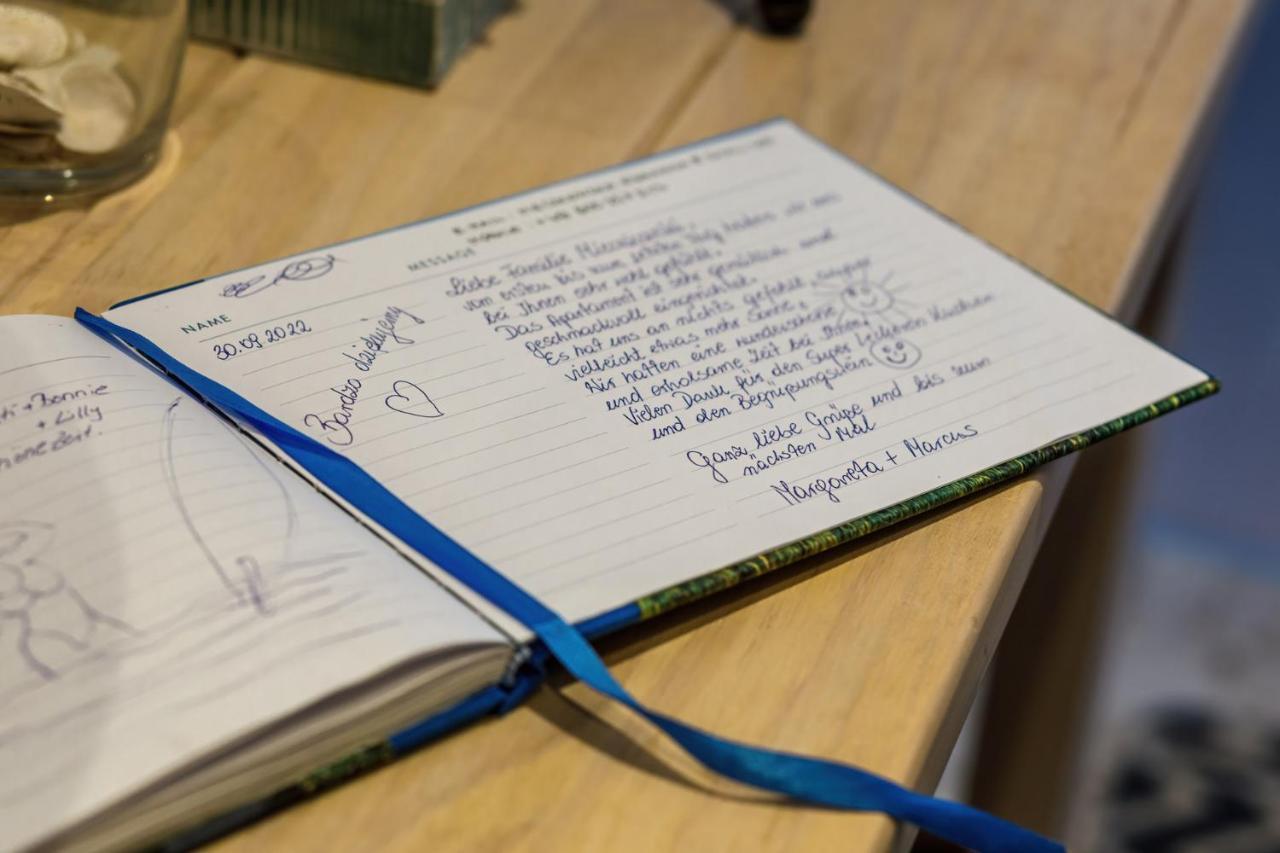 MESSAGE
NAME
30.09.2022
Bardzo dziękujemy
Liebe Familie
vom ersten bis zum letzten Tag haben wir uns
bei Ihnen sehr wohl gefühlt.
Das Apartament ist sehr gemütlich und
geschmackvoll eingerichtet.
Es hat uns an nichts gefehlt, außer
vielleicht etwas mehr Sonne.
Wir hatten eine wunderschöne
und erholsame Zeit bei Ihnen!
Vielen Dank für den super leckeren Kuchen
und den Begrüßungswein
Ganz liebe Grüße und bis zum
nächsten Mal
Margareta + Marcus
+ Bonnie
+ Lilly